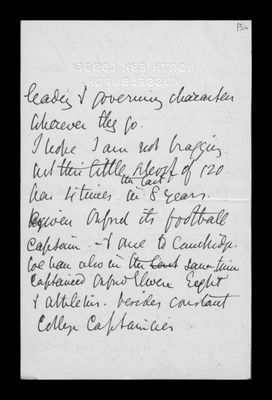 15v
NORTH ESK LODGE
MUSSELBURGH
leading & governing characters
wherever they go.
I hope I am not bragging.
but this little school of 120
has in the last
8 years.
given Oxford its football
Captain. & one to Cambridge.
We have also in the last same time
Captained Oxford Eight
& athletics. besides constant
College Captaincies